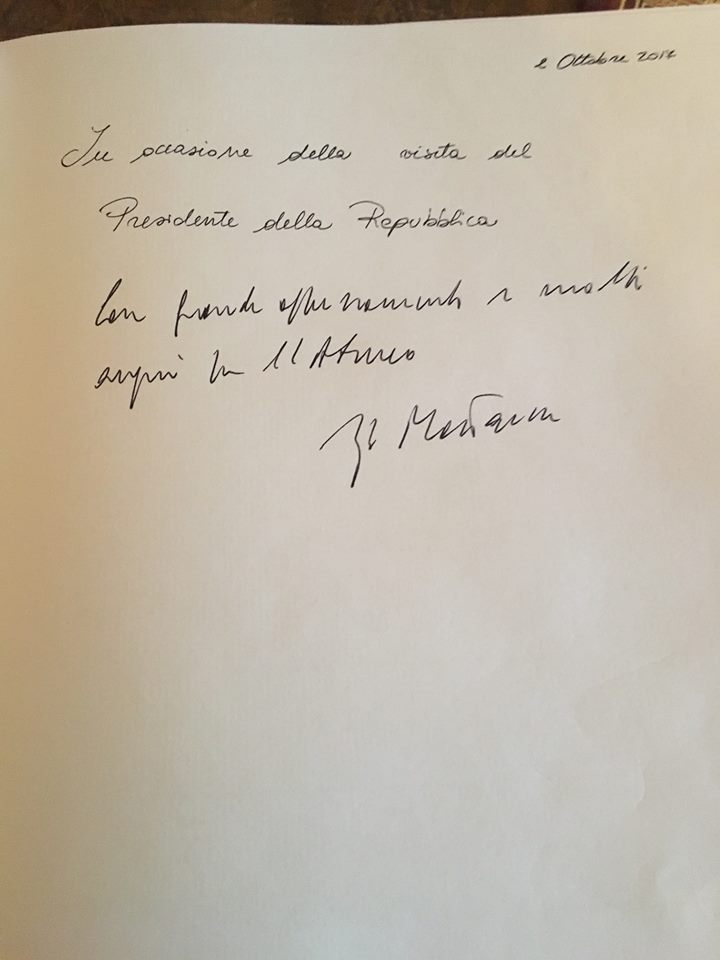 2 Ottobre 2017
In occasione della visita del
Presidente della Repubblica
Con grande apprezzamento e molti
auguri per l'Ateneo
Mattarella